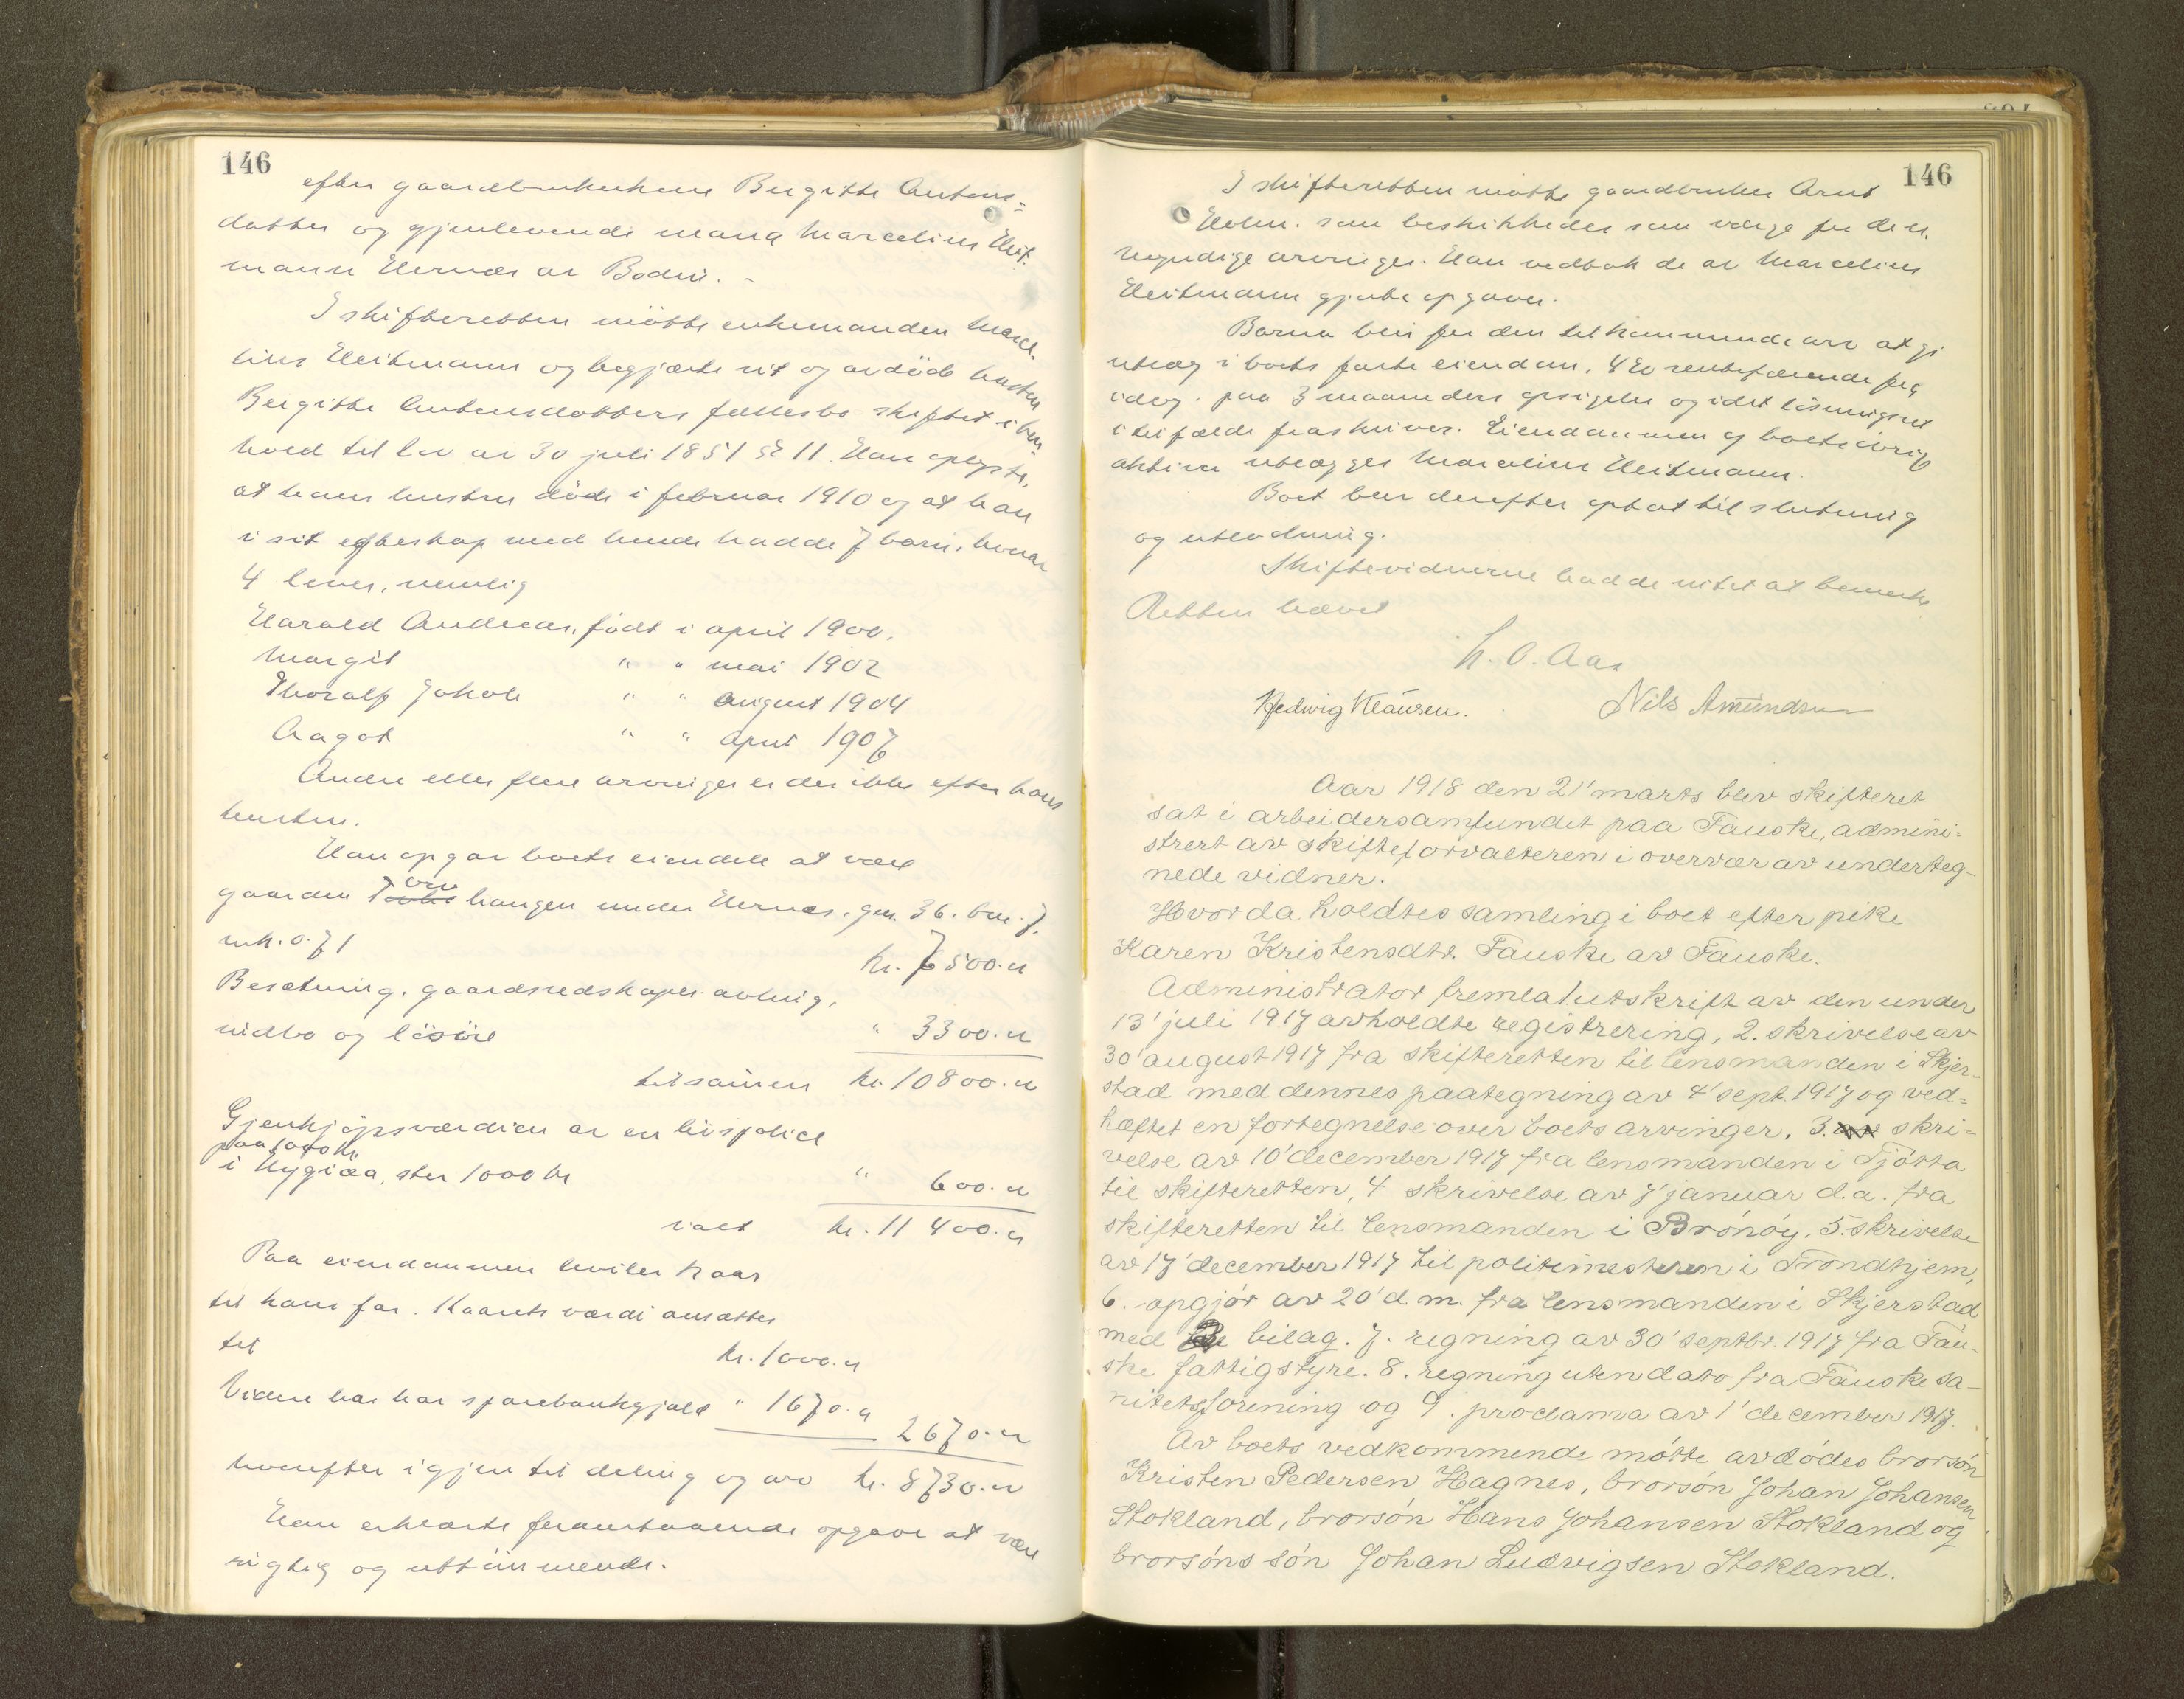 146
efter gaardbrukerkone Bergitte Antons=
datter og gjenlevende mand Marcelius Heit-
mann Hernes av Bodin. -
I skifteretten møtte enkemanden Marce-
lius Heitmann og begjærte sit og avdøde hustru
Bergitte Antonsdatters fællesbo skiftet i hen-
hold til lov av 30 juli 1851 § 11. Han oplyste,
at hans hustru døde i februar 1910 og at han
i sit egteskap med hende hadde 7 barn, hvorav
4 lever, nemlig
Harald Andreas, født i april 1900.
Margit " " mai 1902
Thoralf Jakob " " august 1904
Aagot " " april 1907
Andre eller flere arvinger er der ikke efter hans
hustru.
Han opgav boets eiendele at være
gaarden Torvhaugen under Hernes, gnr. 36. bnr. 7.
mk. 0.71 kr. 7500.„
Besætning, gaardsredskaper avling,
indbo og løsøre " 3300.„
tilsammen kr. 10800.„
Gjenkjøpsværdien av en livspolice
i Hygiæa, stor 1000 kr " 600.„
ialt kr. 11400.„
Paa eiendommen hviler kaar
til hans far. Kaarets værdi ansættes
til kr. 1000.„
Videre har han sparebankgjæld " 1670.„ 2670.„
hvorefter igjen til deling og arv kr. 8730.„
Han erklærte foranstaaende opgave at være
rigtig og uttømmende.
146
I skifteretten møtte gaardbruker Arnt
Holm. som beskikkedes som værge for de u.
myndige arvinger. Han vedtok de av Marcelius
Heitmann gjorte opgaver.
Barna blir for den tilkommende arv at gi
utlæg i boets faste eiendom, 4% rentebærende fra
idag. paa 3 maaneders opsigelse og idet løsningsret
i tilfælde fraskrives. Eiendommen og boets øvrige
aktiva utlægges Marcelius Heitmann.
Boet blev derefter optat til slutning
og utlodning.
Skiftevidnerne hadde intet at bemerke
Retten hævet
H. O. Aas
Hedwig Klausen. Nils Amundsen
Aar 1918 den 21' marts blev skifteret
sat i arbeidersamfundet paa Fauske, admini=
strert av skifteforvalteren i overvær av underteg-
nede vidner.
Hvorda holdtes samling i boet efter pike
Karen Kristensdtr. Fauske av Fauske.
Administrator fremla 1. utskrift av den under
13' juli 1917 avholdte registrering, 2. skrivelse av
30' august 1917 fra skifteretten til lensmanden i Skjer-
stad med dennes paategning av 4' sept. 1917 og ved=
hæftet en fortegnelse over boets arvinger. 3. skri=
velse av 10' december 1917 fra lensmanden i Tjøtta
til skifteretten, 4 skrivelse av 7' januar d.a. fra
skifteretten til lensmanden i Brønøy. 5. skrivelse
av 17' december 1917 til politimesteren i Trondhjem,
6. opgjør av 20' d.m. fra lensmanden i Skjerstad
med 2 bilag. 7. regning av 30' septbr. 1917 fra Fau-
ske fattigstyre. 8. regning uten dato fra Fauske sa-
nitetsforening og 9. proclama av 1' december 1917.
Av boets vedkommende møtte avdødes brorsøn
Kristen Pedersen Hagnes, brorsøn Johan Johansen
Stokland, brorsøn Hans Johansen Stokland og
brorsøns søn Johan Ludvigsen Stokland.